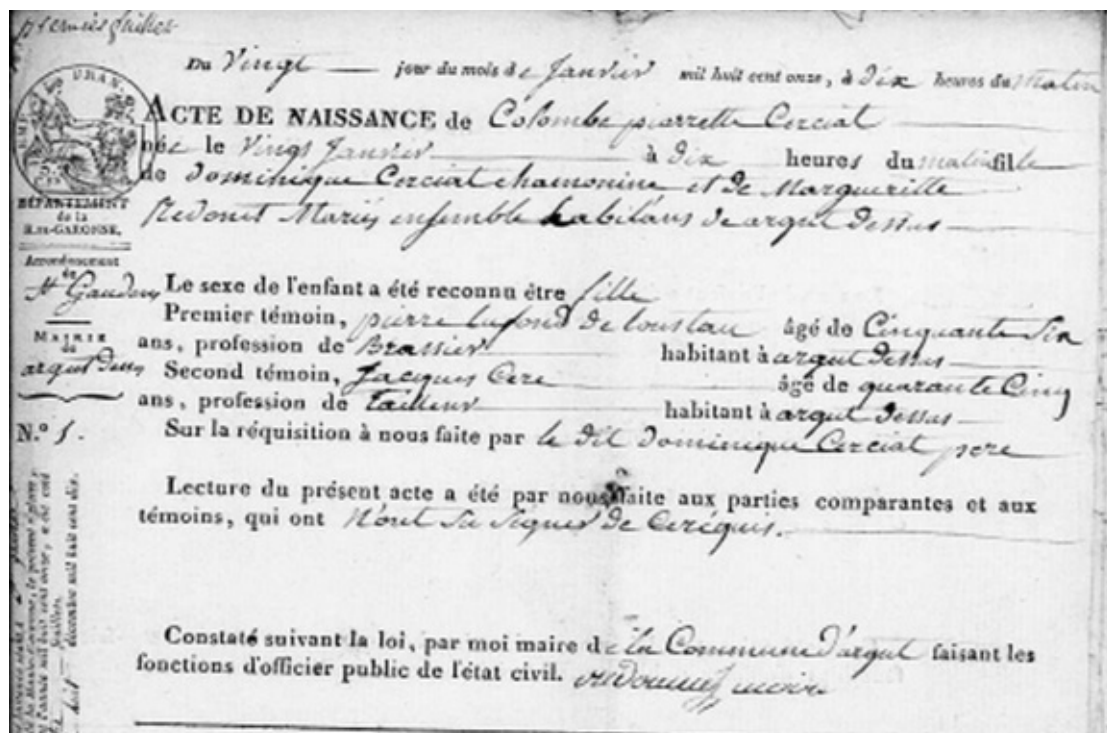 premier feuillet
Du Vingt jour du mois de Janvier mil huit cent onze, à dix heures du matin
ACTE DE NAISSANCE de Colombe pierrette Cerciat
née le Vingt Janvier à dix heures du matin fille
de dominique Cerciat chamonine et de Margueritte
Redonet Mariés ensemble habitans de argut dessus
DÉPARTEMENT
de la
H.te-GARONNE,
Arrondissement
de
St Gaudens
MAIRIE
de
argut dessus
N.º 1.
Le sexe de l'enfant a été reconnu être fille
Premier témoin, pierre lafond de loustau âgé de Cinquante Six
ans, profession de Brassier habitant à argut dessus
Second témoin, Jacques Cere âgé de quarante Cinq
ans, profession de tailleur habitant à argut dessus
Sur la réquisition à nous faite par le dit dominique Cerciat pere
Lecture du présent acte a été par nous faite aux parties comparantes et aux
témoins, qui ont N'ont Su Signer de Ce réquis.
Constaté suivant la loi, par moi maire de la Commune d'argut faisant les
fonctions d'officier public de l'état civil. maire